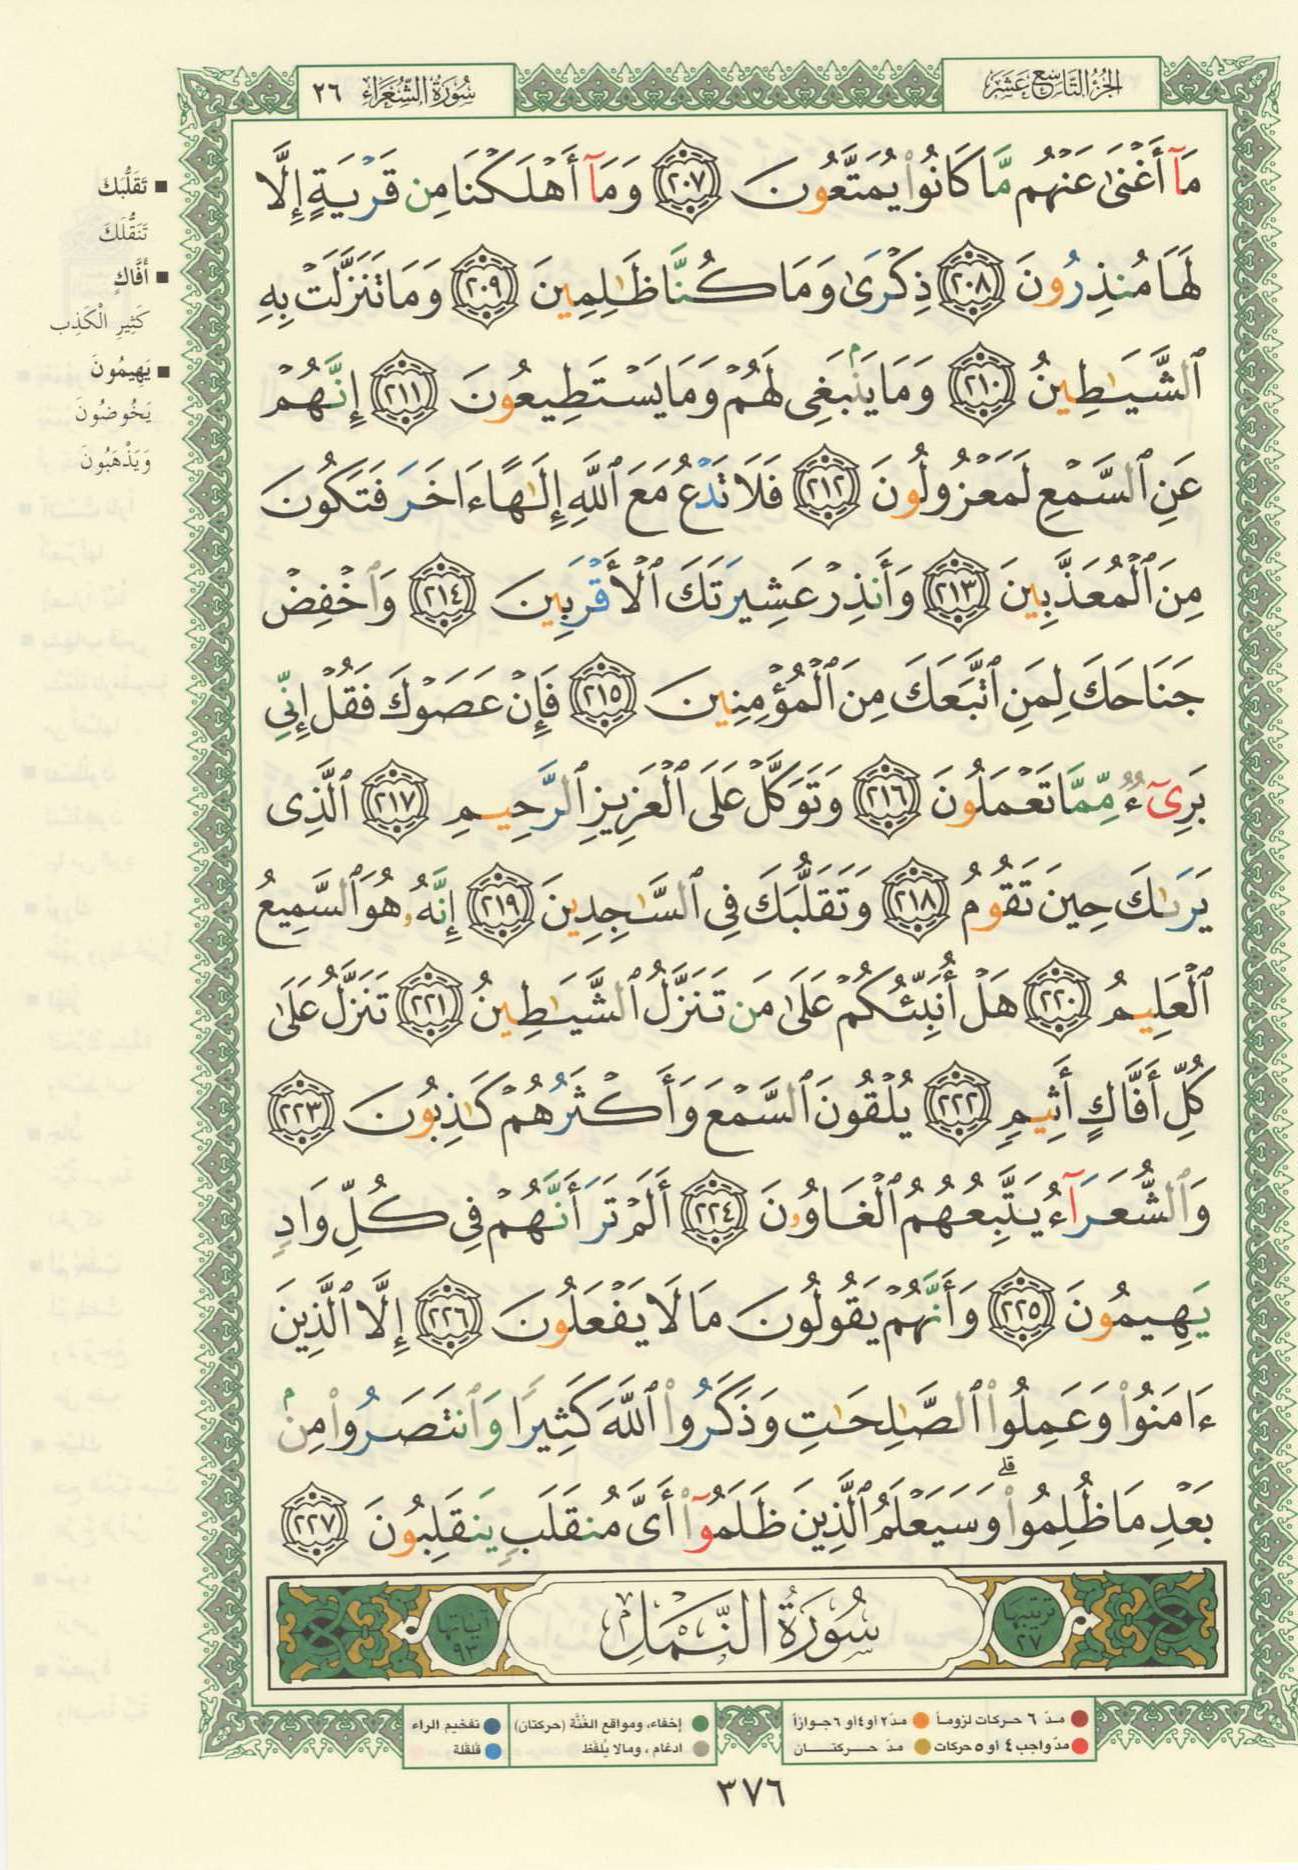 الجزء التاسع عشر
سورة الشعراء ٢٦
مَآ أَغْنَىٰ عَنْهُم مَّا كَانُوا۟ يُمَتَّعُونَ ٢٠٧ وَمَآ أَهْلَكْنَا مِن قَرْيَةٍ إِلَّا
لَهَا مُنذِرُونَ ٢٠٨ ذِكْرَىٰ وَمَا كُنَّا ظَٰلِمِينَ ٢٠٩ وَمَا تَنَزَّلَتْ بِهِ
ٱلشَّيَٰطِينُ ٢١٠ وَمَا يَنۢبَغِى لَهُمْ وَمَا يَسْتَطِيعُونَ ٢١١ إِنَّهُمْ
عَنِ ٱلسَّمْعِ لَمَعْزُولُونَ ٢١٢ فَلَا تَدْعُ مَعَ ٱللَّهِ إِلَٰهًا ءَاخَرَ فَتَكُونَ
مِنَ ٱلْمُعَذَّبِينَ ٢١٣ وَأَنذِرْ عَشِيرَتَكَ ٱلْأَقْرَبِينَ ٢١٤ وَٱخْفِضْ
جَنَاحَكَ لِمَنِ ٱتَّبَعَكَ مِنَ ٱلْمُؤْمِنِينَ ٢١٥ فَإِنْ عَصَوْكَ فَقُلْ إِنِّى
بَرِىٓءٌ مِّمَّا تَعْمَلُونَ ٢١٦ وَتَوَكَّلْ عَلَى ٱلْعَزِيزِ ٱلرَّحِيمِ ٢١٧ ٱلَّذِى
يَرَىٰكَ حِينَ تَقُومُ ٢١٨ وَتَقَلُّبَكَ فِى ٱلسَّٰجِدِينَ ٢١٩ إِنَّهُۥ هُوَ ٱلسَّمِيعُ
ٱلْعَلِيمُ ٢٢٠ هَلْ أُنَبِّئُكُمْ عَلَىٰ مَن تَنَزَّلُ ٱلشَّيَٰطِينُ ٢٢١ تَنَزَّلُ عَلَىٰ
كُلِّ أَفَّاكٍ أَثِيمٍ ٢٢٢ يُلْقُونَ ٱلسَّمْعَ وَأَكْثَرُهُمْ كَٰذِبُونَ ٢٢٣
وَٱلشُّعَرَآءُ يَتَّبِعُهُمُ ٱلْغَاوُۥنَ ٢٢٤ أَلَمْ تَرَ أَنَّهُمْ فِى كُلِّ وَادٍ
يَهِيمُونَ ٢٢٥ وَأَنَّهُمْ يَقُولُونَ مَا لَا يَفْعَلُونَ ٢٢٦ إِلَّا ٱلَّذِينَ
ءَامَنُوا۟ وَعَمِلُوا۟ ٱلصَّٰلِحَٰتِ وَذَكَرُوا۟ ٱللَّهَ كَثِيرًا وَٱنتَصَرُوا۟ مِنۢ
بَعْدِ مَا ظُلِمُوا۟ ۗ وَسَيَعْلَمُ ٱلَّذِينَ ظَلَمُوٓا۟ أَىَّ مُنقَلَبٍ يَنقَلِبُونَ ٢٢٧
ترتيبها ٢٧
سورة النمل
آياتها ٩٣
■ تَقَلُّبَكَ
تَنَقُّلَكَ
■ أَفَّاكٍ
كَثِيرِ الْكَذِب
■ يَهِيمُونَ
يَخُوضُونَ
وَيَذْهَبُونَ
مدّ ٦ حركات لزوماً مدّ ٢ أو ٤ أو ٦ جوازاً
مدّ واجب ٤ أو ٥ حركات مدّ حركتان
إخفاء، ومواقع الغُنَّة (حركتان) تفخيم الراء
ادغام، ومالا يُلفَظ قلقلة
٣٧٦